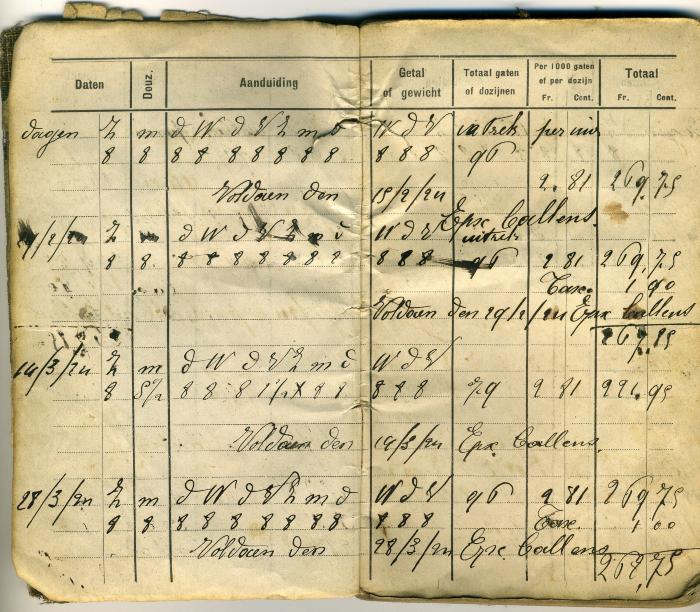 Daten Douz. Aanduiding Getal of gewicht Totaal gaten of dozijnen Per 1000 gaten of per dozijn Fr. Cent. Totaal Fr. Cent.
dagen Z m d W d V Z m d W d V uittrek per uur
8 8 8 8 8 8 8 8 8 8 8 8 8 96
2.81 269.75
Voldaen den 15/2/24
Epx Callens.
29/2/24 Z m d W d V Z m d W d V uittrek
8 8 8 8 8 8 8 8 8 8 8 8 96 2 81 269,75
Taxe 1 90
Voldaen den 29/2/24 Epx Callens
267,85
14/3/24 Z m d W d V Z m d W d V
8 5½ 8 8 8 8 8 8 8 8 79 2 81 221.95
Voldaen den 14/3/24 Epx Callens.
28/3/24 Z m d W d V Z m d W d V 96 2 81 269,75
8 8 8 8 8 8 8 8 8 8 8 8 Taxe 1 00
Voldaen den 28/3/24 Epx Callens
268,75